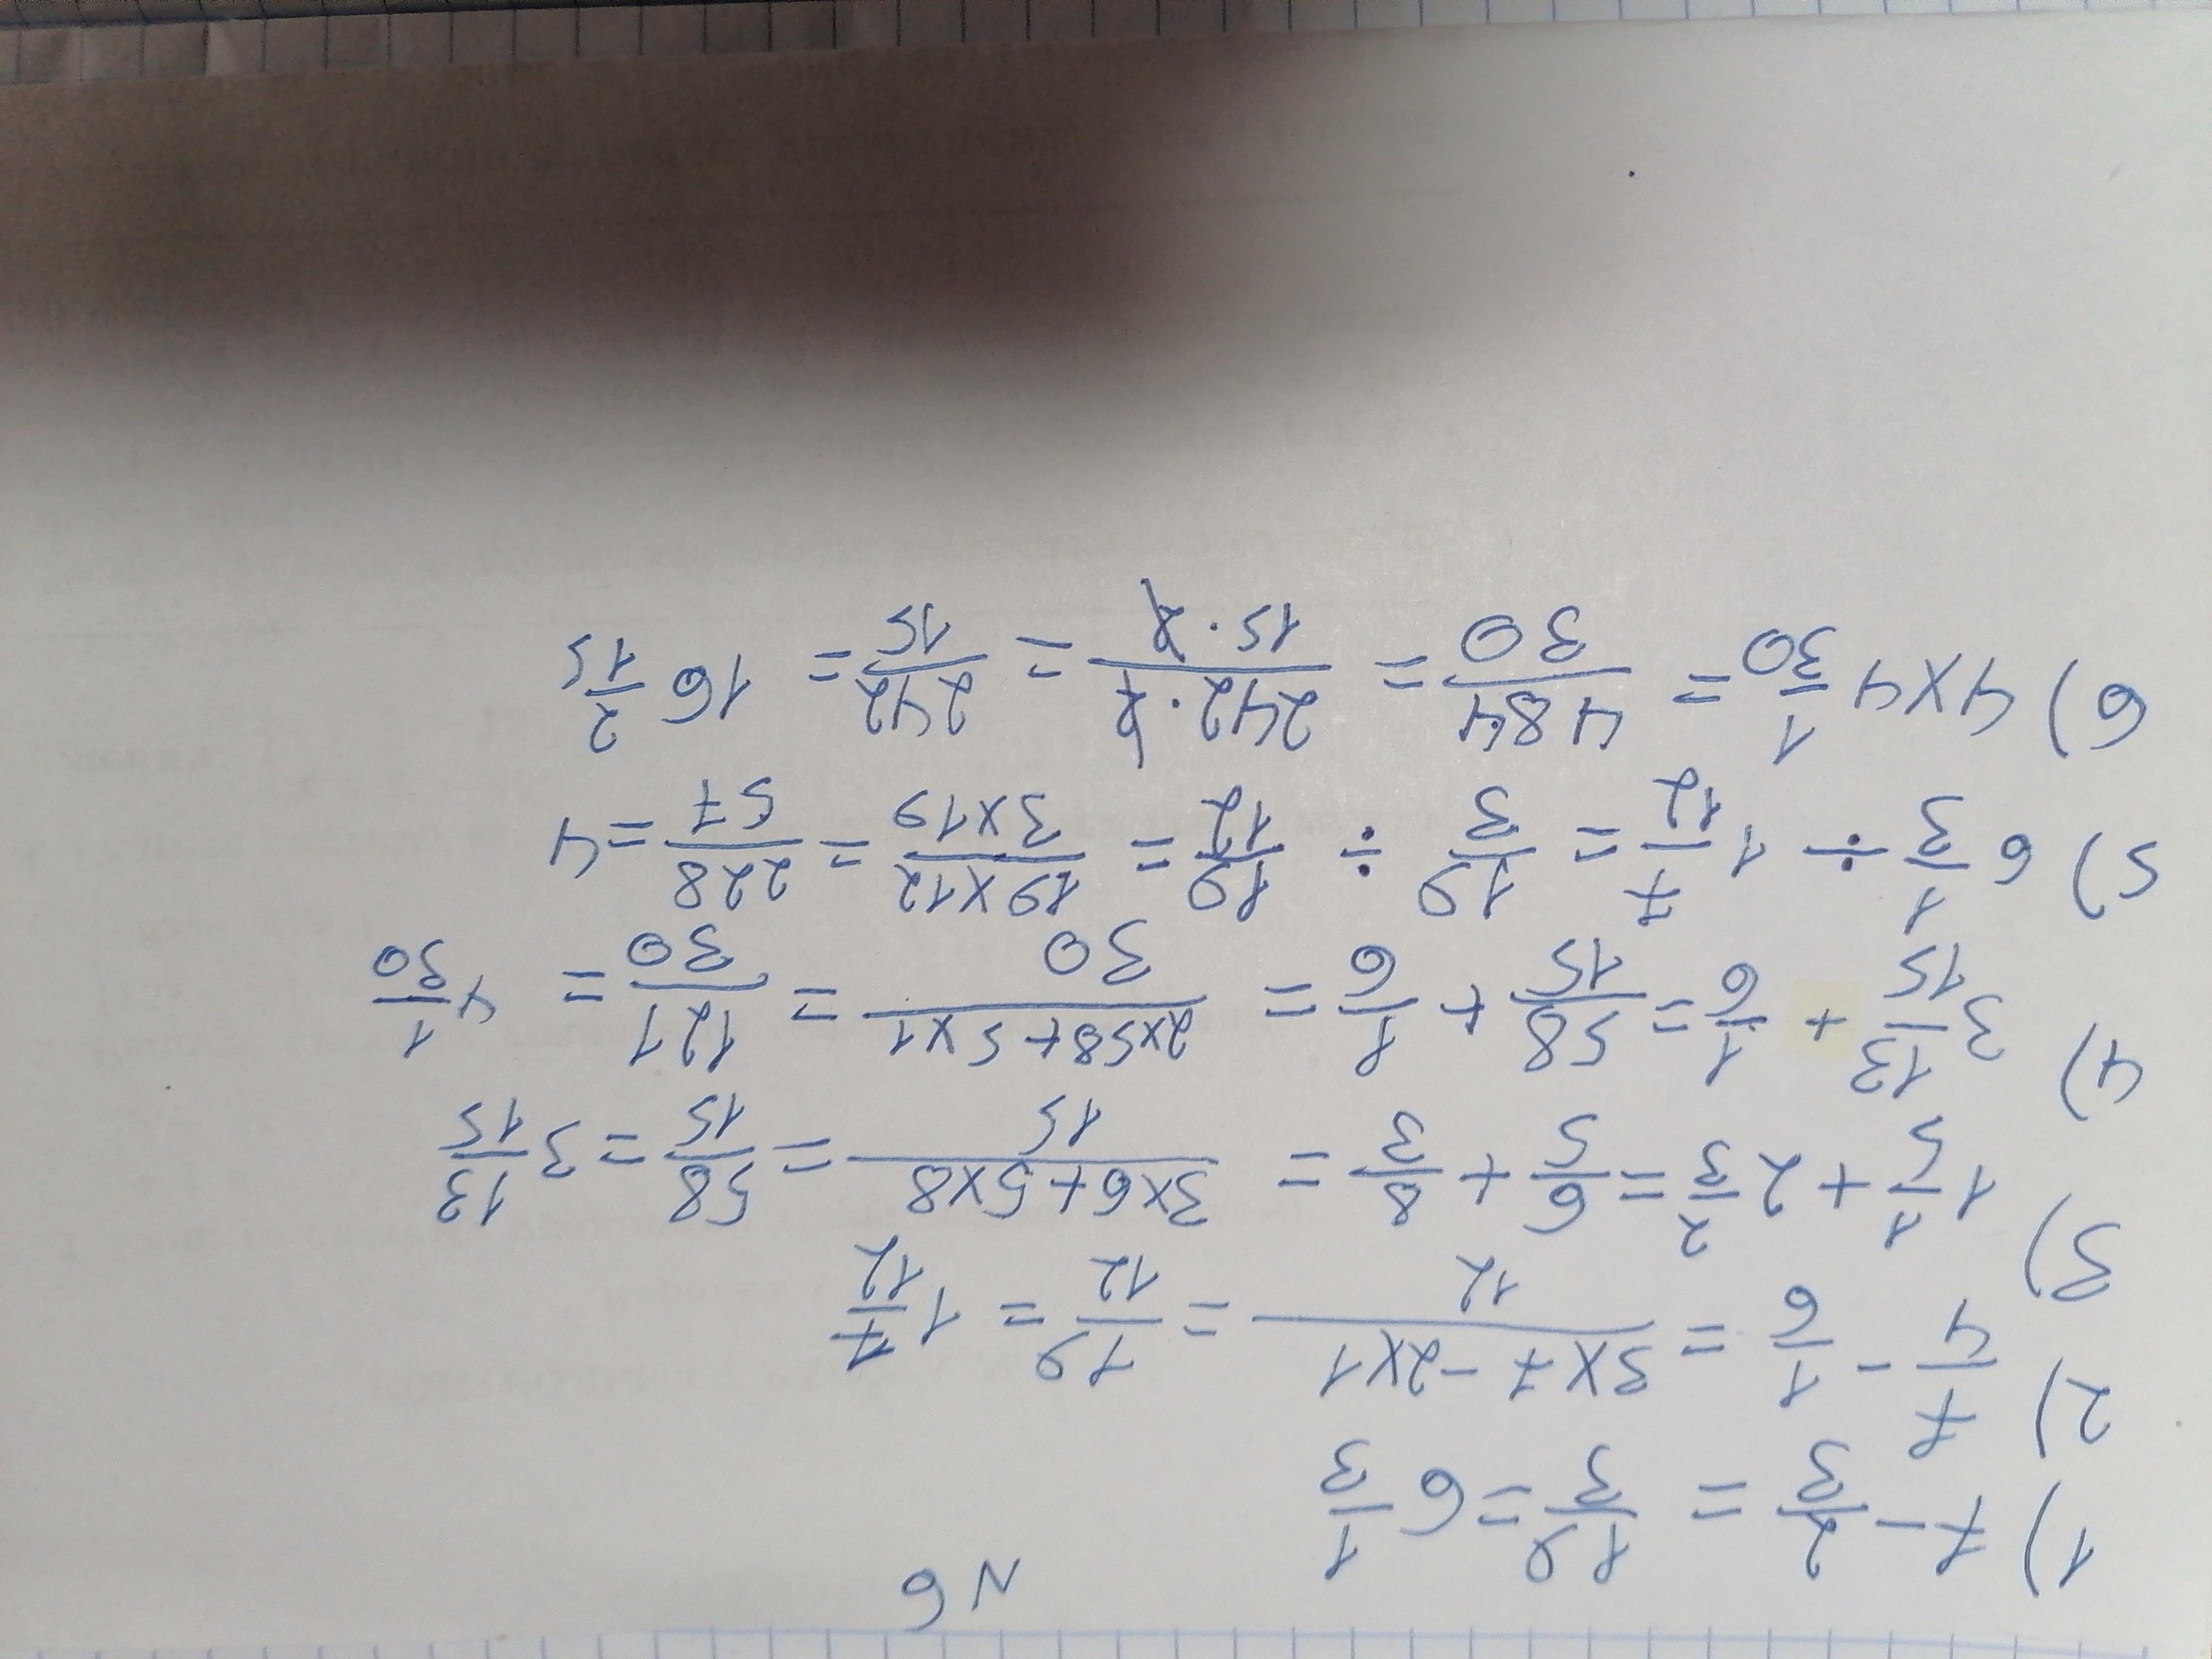 N 6
1) 7 - 2/3 = 19/3 = 6 1/3
2) 7/4 - 1/6 = (3x7-2x1)/12 = 19/12 = 1 7/12
3) 1 1/5 + 2 2/3 = 6/5 + 8/3 = (3x6+5x8)/15 = 58/15 = 3 13/15
4) 3 13/15 + 1/6 = 58/15 + 1/6 = (2x58+5x1)/30 = 121/30 = 4 1/30
5) 6 1/3 ÷ 1 7/12 = 19/3 ÷ 19/12 = (19x12)/(3x19) = 228/57 = 4
6) 4x4 1/30 = 484/30 = (242·2)/(15·2) = 242/15 = 16 2/15